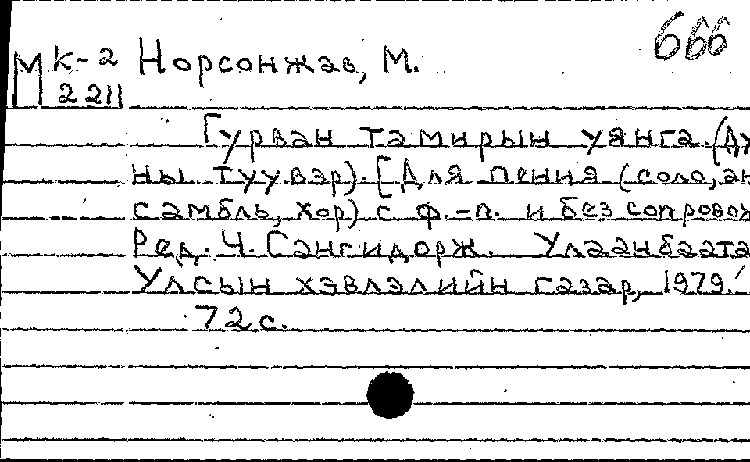 666
М к-2 Норсонжав, М.
2211
Гурван тамирын уянга. (Ду
ны туувэр). [Для пения (соло, ан
самбль, хор) с ф.-п. и без сопровож
Ред. Ч. Сангидорж. Улаанбаата
Улсын хэвлэлийн газар, 1979.
72 с.